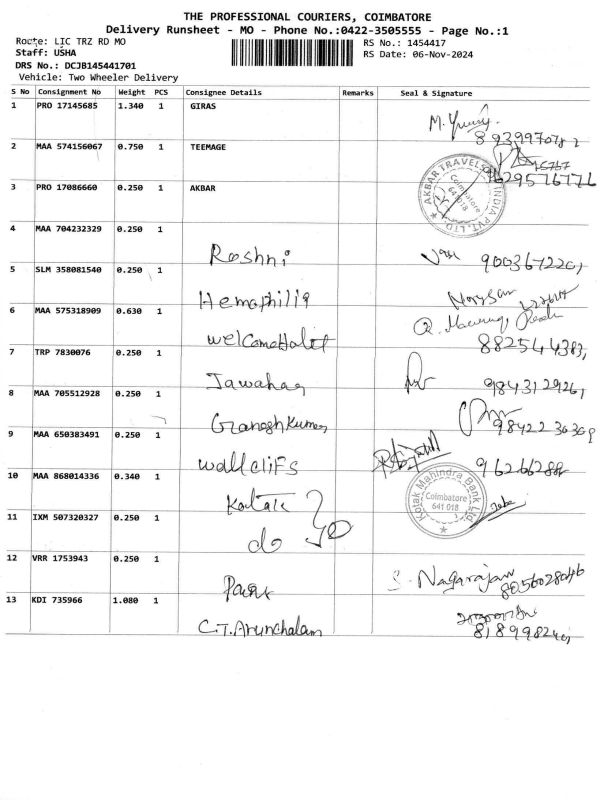 THE PROFESSIONAL COURIERS, COIMBATORE
Delivery Runsheet - MO - Phone No.:0422-3505555 - Page No.:1
Route: LIC TRZ RD MO
RS No.: 1454417
Staff: USHA
RS Date: 06-Nov-2024
DRS No.: DCJB145441701
Vehicle: Two Wheeler Delivery
S No Consignment No Weight PCS Consignee Details Remarks Seal & Signature
1 PRO 17145685 1.340 1 GIRAS
8939970782
2 MAA 574156067 0.750 1 TEEMAGE
3 PRO 17086660 0.250 1 AKBAR
AKBAR TRAVELS OF INDIA PVT. LTD. Coimbatore 641 018
4 MAA 704232329 0.250 1 Roshni
5 SLM 358081540 0.250 1 Hemophilia
6 MAA 575318909 0.630 1 welcomeHotel
7 TRP 7830076 0.250 1 Jawahar
8 MAA 705512928 0.250 1 Ganesh Kumar
9 MAA 650383491 0.250 1 wallcliFs
10 MAA 868014336 0.340 1 Kotak
Kotak Mahindra Bank Ltd. Coimbatore 641 018
11 IXM 507320327 0.250 1 do
12 VRR 1753943 0.250 1
S. Nagarajan
8056028046
13 KDI 735966 1.080 1 C.T.Arunchalam